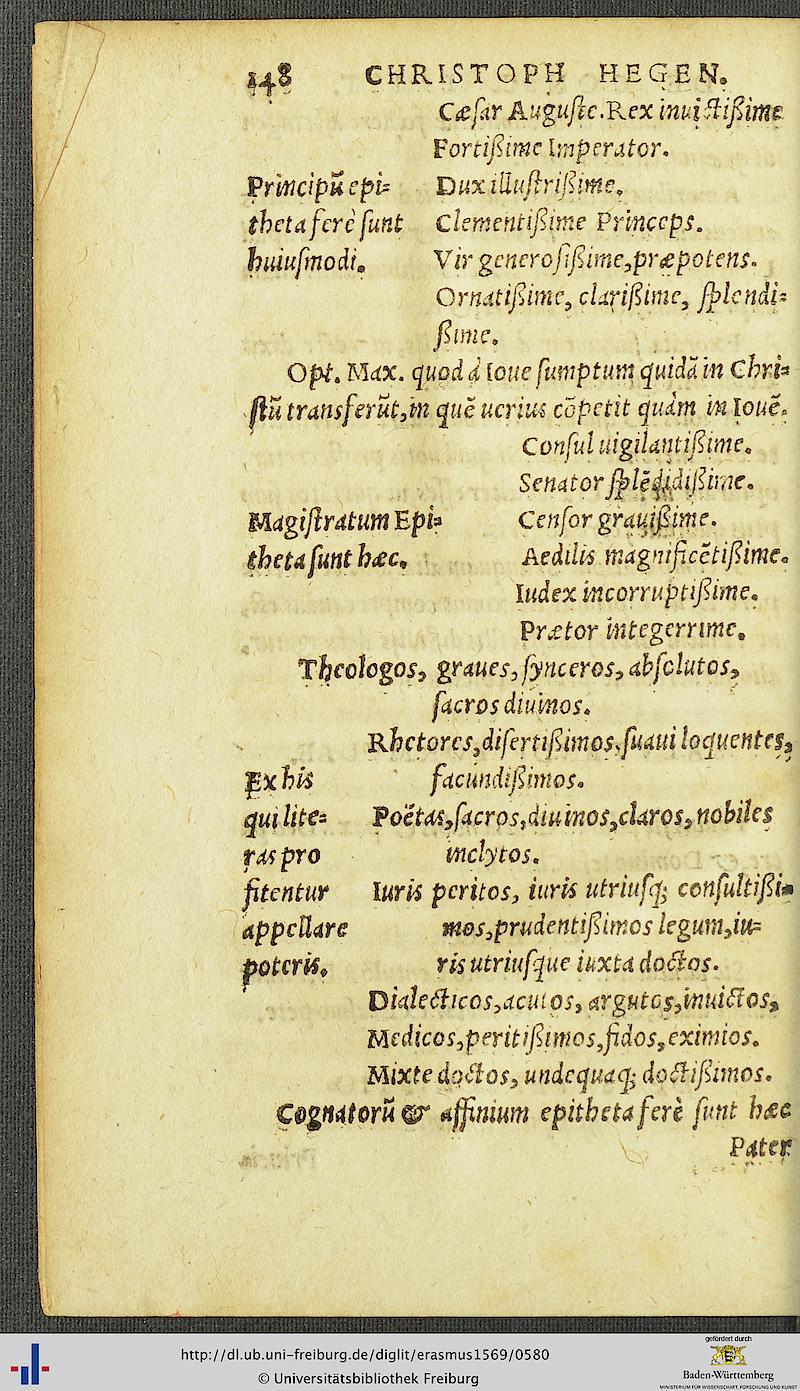 148 CHRISTOPH HEGEN.
Cæſar Auguſte. Rex inuictißime
Fortißime Imperator.
Principū epi= Dux illuſtrißime.
theta ferè ſunt Clementißime Princeps.
huiuſmodi. Vir generoſißime, præpotens.
Ornatißime, clarißime, ſplendi=
ßime.
Opt. Max. quod à Ioue ſumptum quidā in Chri=
ſtū transferūt, in quē uerius cōpetit quàm in Iouē.
Conſul uigilantißime.
Senator ſplēdidißime.
Magiſtratum Epi= Cenſor grauißime.
theta ſunt hæc. Aedilis magnificētißime.
Iudex incorruptißime.
Prætor integerrime.
Theologos, graues, ſynceros, abſolutos,
ſacros diuinos.
Rhetores, diſertißimos, ſuaui loquentes,
Ex his facundißimos.
qui lite= Poëtas, ſacros, diuinos, claros, nobiles
ras pro inclytos.
fitentur Iuris peritos, iuris utriuſq; conſultißi=
appellare mos, prudentißimos legum, iu=
poteris. ris utriuſque iuxta doctos.
Dialecticos, acutos, argutos, inuictos,
Medicos, peritißimos, fidos, eximios.
Mixte doctos, undequaq; doctißimos.
Cognatorū & affinium epitheta ferè ſunt hæc
Pater
http://dl.ub.uni-freiburg.de/diglit/erasmus1569/0580
© Universitätsbibliothek Freiburg
gefördert durch
Baden-Württemberg
MINISTERIUM FÜR WISSENSCHAFT, FORSCHUNG UND KUNST